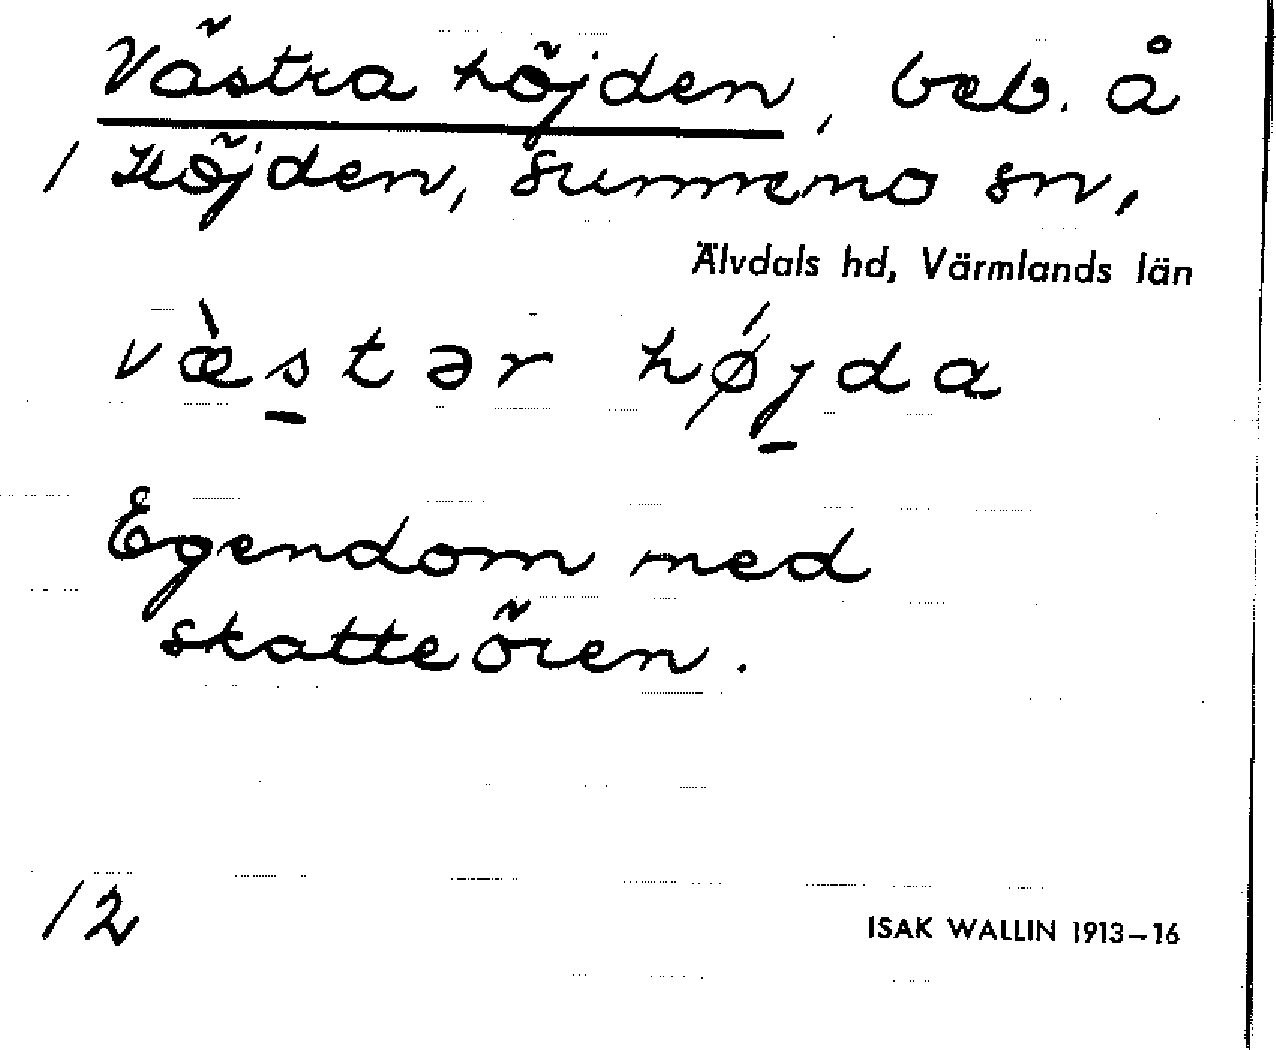 Västra höjden, beb. å
1 Höjden, Sunnemo sn,
Älvdals hd, Värmlands län
væ̀s̱tər hǿj̱da
Egendom med
skatteören.
12
ISAK WALLIN 1913–16